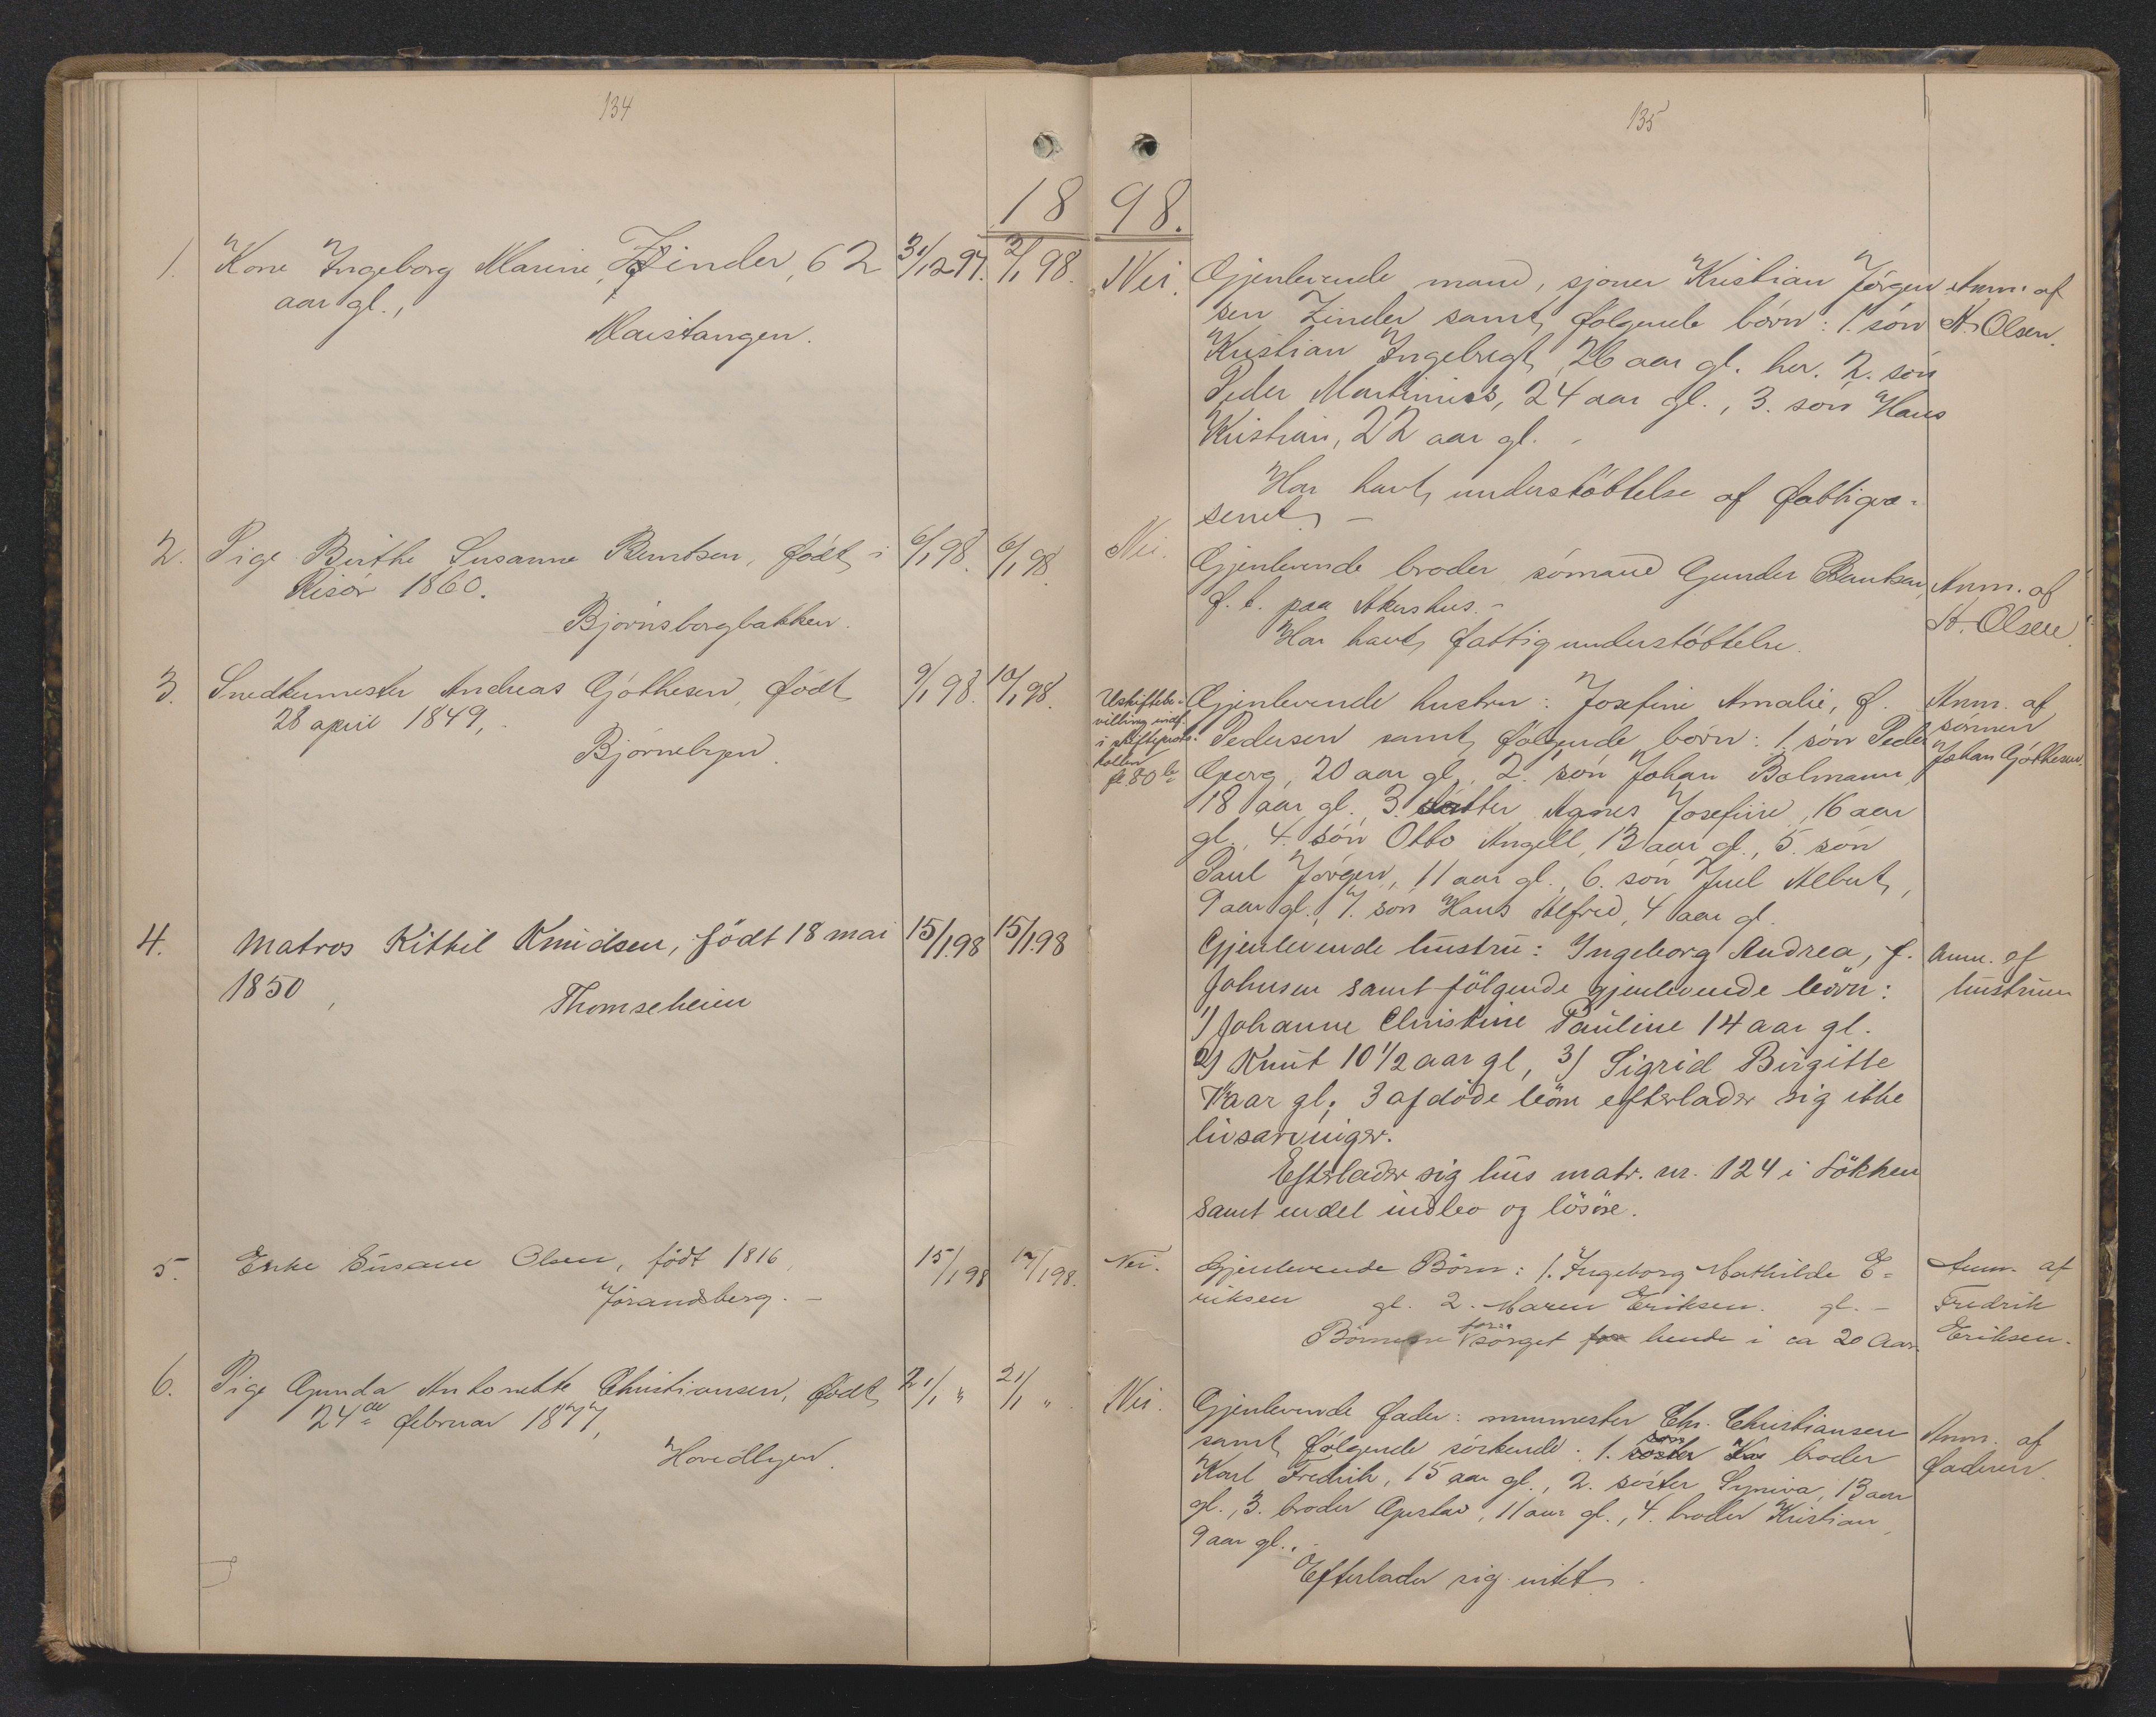 134
135
18 98.
1. Kone Ingeborg Marine, Zinder, 62 31/12 97. 3/1 98. Nei.
aar gl.,
Maistangen.
Gjenlevende mand, sjouer Kristian Jörgen
sen Zinder samt følgende børn: 1. søn
Kristian Ingebregt, 26 aar gl. her. 2. søn
Peder Martinius, 24 aar gl., 3. søn Hans
Kristian, 22 aar gl. -
Har havt understøttelse af fattigvæ-
senet -
Anm. af
A. Olsen.
2. Pige Birthe Susanne Berntsen, født i 6/1 98. 6/1 98. Nei.
Risør 1860.
Bjørnsborgbakken.
Gjenlevende broder sømand Gunder Berntsen
f. t. paa Akershus. -
Har havt fattigunderstøttelse.
Anm. af
A. Olsen
3. Snedkermester Andreas Gjøthesen, født 9/1 98. 10/1 98.
28 april 1849,
Bjørnebyen.
Uskiftebe-
villing indf.
i skifteproto-
kollen
fol. 80
Gjenlevende hustru: Josefine Amalie, f.
Pedersen samt følgende børn: 1. søn Peder
Georg, 20 aar gl., 2. søn Johan Bolmann,
18 aar gl., 3. datter Agnes Josefine, 16 aar
gl., 4. søn Otto Angell, 13 aar gl., 5. søn
Paul Jørgen, 11 aar gl., 6. søn Juel Albert,
9 aar gl., 7. søn Hans Alfred, 4 aar gl.
Anm. af
sønnen
Johan Gjøthesen.
4. Matros Kittil Knudsen, födt 18 mai 15/1.98 15/1.98
1850,
Thomseheien
Gjenlevende hustru: Ingeborg Andrea, f.
Johnsen samt fölgende gjenlevende börn:
1) Johanne Christine Pauline 14 aar gl.
2) Knut 10 1/2 aar gl, 3) Sigrid Birgitte
7 aar gl; 3 afdöde börn efterlader sig ikke
livsarvinger.
Efterlader sig hus matr. nr. 124 i Lökken
samt endel indbo og lösöre.
Anm. af
hustruen
5. Enke Susane Olsen, födt 1816, 15/1 98 17/1 98. Nei.
Jörandsberg. -
Gjenlevende Börn: 1. Ingeborg Mathilde E-
riksen gl. 2. Maren Eriksen. gl. -
Börnene forsörget for hende i ca 20 Aar.
Anm. af
Fredrik
Eriksen.
6. Pige Gunda Antonette Christiansen, født 21/1 " 21/1 ". Nei.
24de februar 1877,
Hovedbyen.
Gjenlevende fader: murmester Chr. Christiansen
samt følgende søskende: 1. søster Ka broder
Karl Fredrik, 15 aar gl., 2. søster Syniva, 13 aar
gl., 3. broder Gustav, 11 aar gl., 4. broder Kristian,
9 aar gl. -
Efterlader sig intet.
Anm. af
faderen.